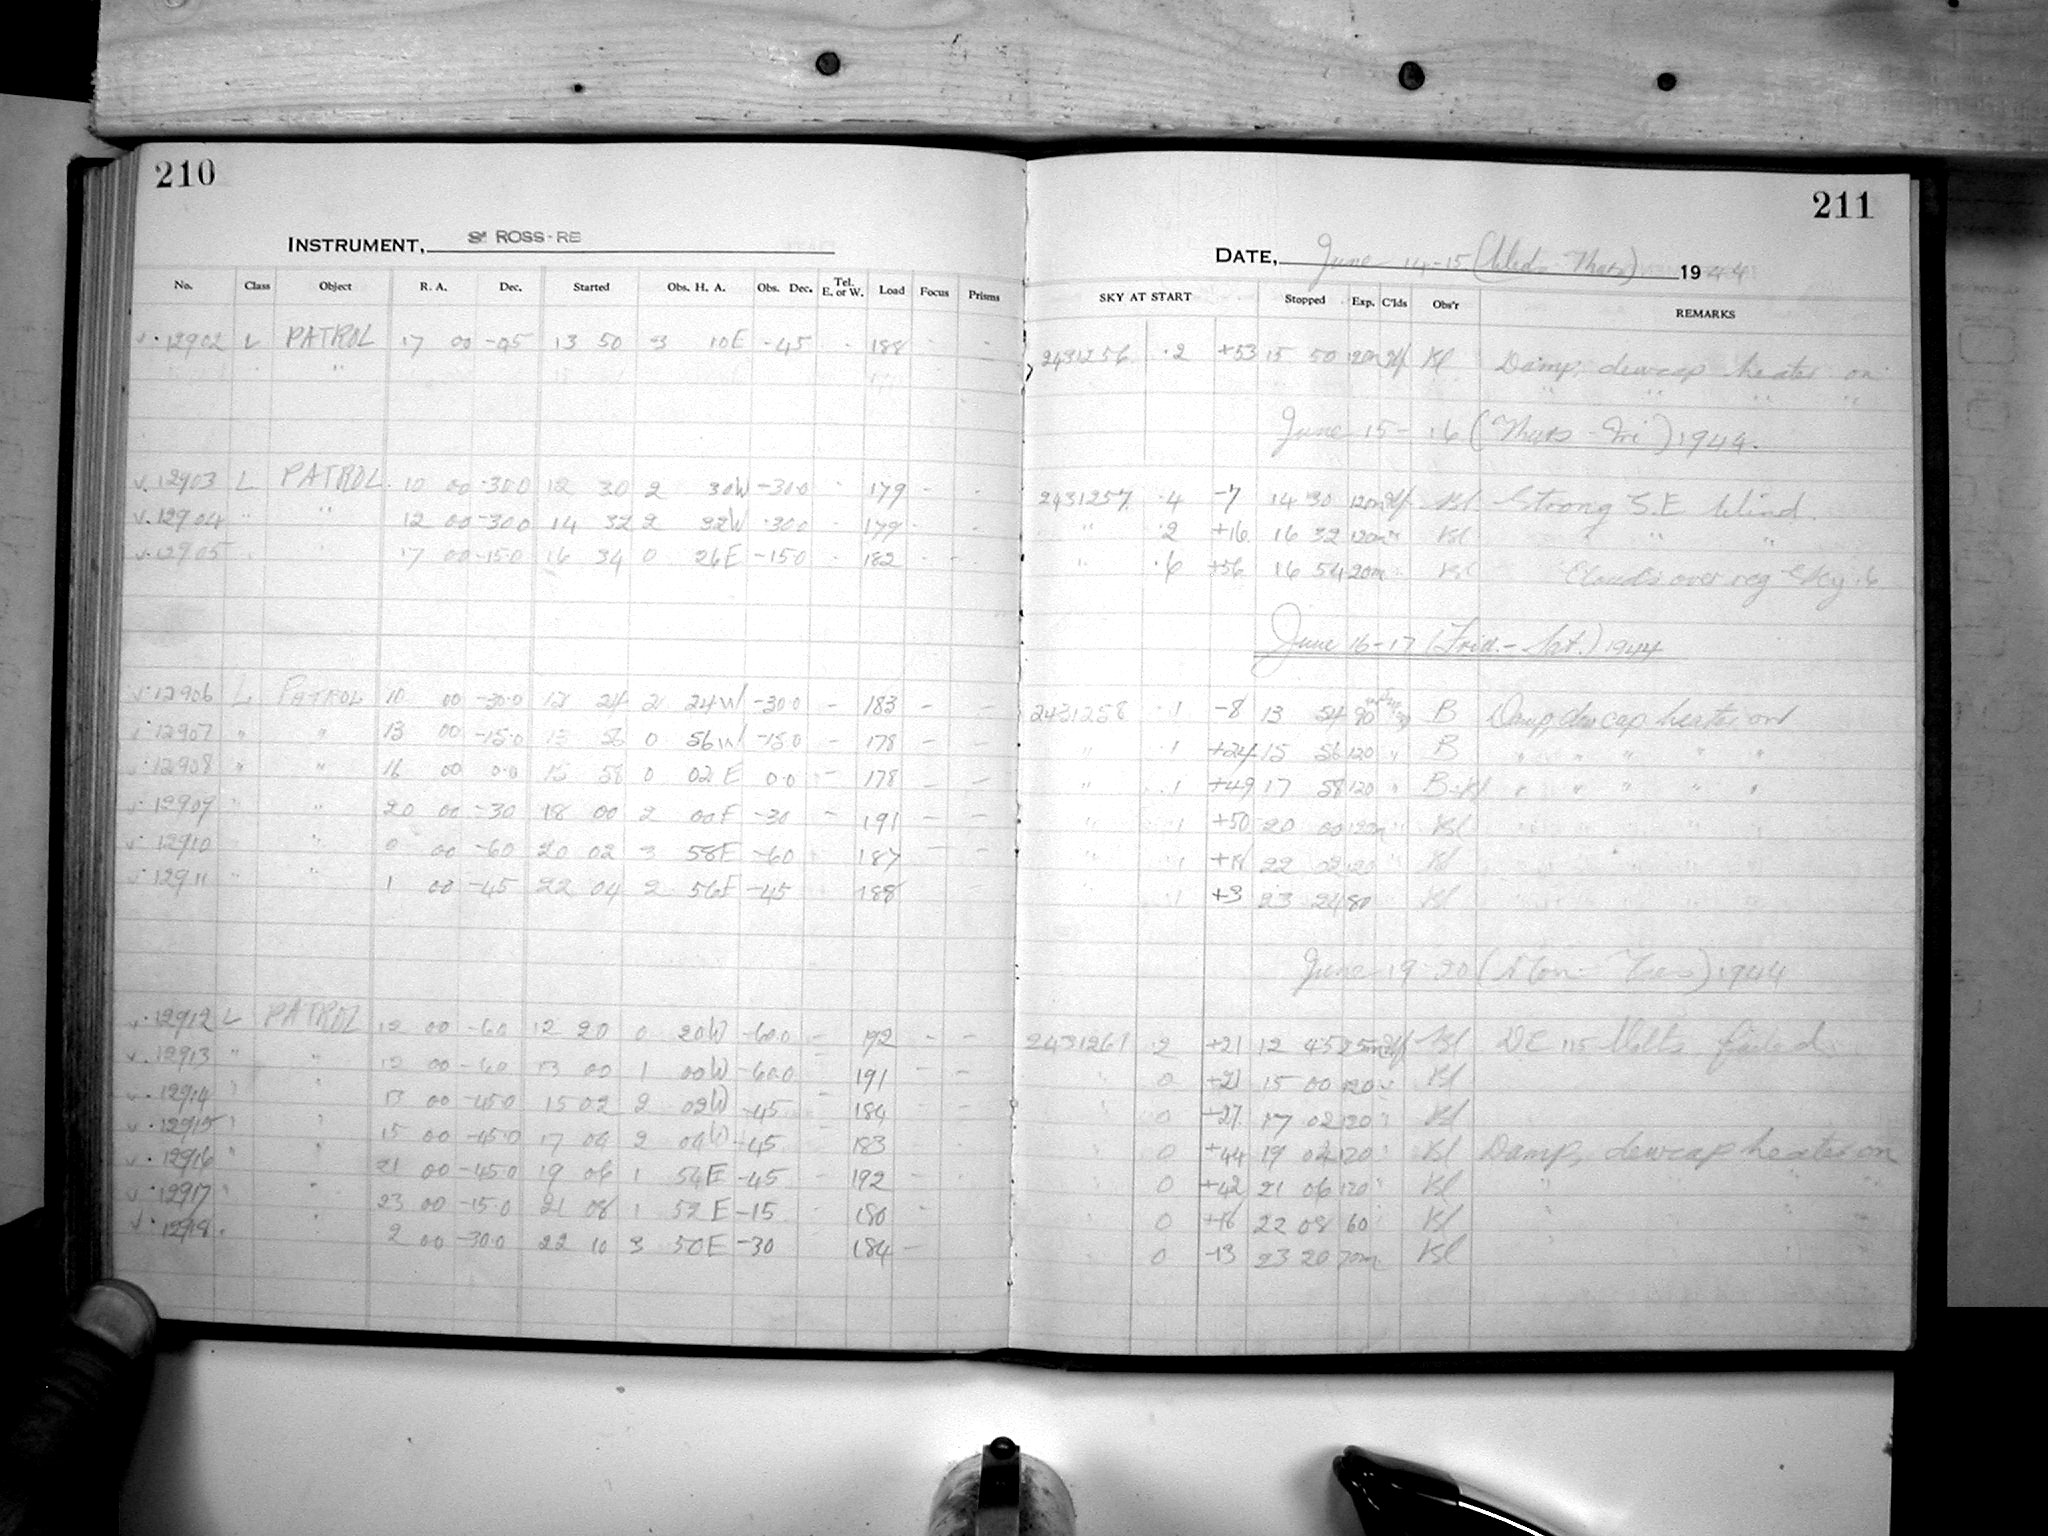 210
INSTRUMENT, ROSS-RE
No. Class Object R. A. Dec. Started Obs. H. A. Obs. Dec. Tel. E. or W. Load Focus Prisms
12902 L PATROL 17 00 -45 13 50 3 10E -45 188
12903 L PATROL 10 00 -30.0 12 30 2 30W -30.0 179
12904 " " 12 00 -30.0 14 32 2 32W -30.0 179
12905 17 00 -15.0 16 34 0 26E -15.0 182
12906 L PATROL 10 00 -30.0 12 24 2 24W -30.0 - 183 - -
12907 " " 13 00 -15.0 13 56 0 56W -15.0 - 178 - -
12908 " " 16 00 0.0 15 58 0 02E 0.0 - 178 - -
12909 " " 20 00 -30 18 00 2 00E -30 - 191 - -
12910 " 0 00 -60 20 02 3 58E -60 187 - -
12911 " " 1 00 -45 22 04 2 56E -45 188
12912 L PATROL 12 00 -60 12 20 0 20W -60.0 - 192 - -
12913 " " 12 00 -60 13 00 1 00W -60.0 - 191 - -
12914 " " 13 00 -45.0 15 02 2 02W -45 - 184 - -
12915 " " 15 00 -45.0 17 04 2 04W -45 183
12916 " " 21 00 -45.0 19 06 1 54E -45 192 -
12917 " " 23 00 -15.0 21 08 1 52E -15 180
12918 2 00 -30.0 22 10 3 50E -30 184 -
211
DATE, June 14-15 (Wed - Thurs) 1944
SKY AT START Stopped Exp. C'lds Obs'r REMARKS
2431256 .2 +53 15 50 120m Bl Damp, dewcap heater on
" " " "
June 15-16 (Thurs - Fri) 1944.
2431257 .4 -7 14 30 120m Bl Strong S.E Wind.
" .2 +16 16 32 120m Bl " "
" .6 +56 16 54 20m Bl Clouds over reg Sky .6
June 16-17 (Frid. - Sat.) 1944
2431258 .1 -8 13 54 90 B Damp, dewcap heater on
" .1 +24 15 56 120 " B " " " " "
" .1 +49 17 58 120 " B+Bl " " " " "
" .1 +50 20 00 120m " Bl
" .1 22 02 120 Bl
.1 +3 23 24 80 Bl
June 19-20 (Mon - Tues) 1944
2431261 .2 +21 12 45 25m Bl DC 115 Volts failed.
0 +21 15 00 120 Bl
0 +27 17 02 120 Bl
0 +44 19 04 120 Bl Damp, dewcap heater on
0 +42 21 06 120 Bl " " " "
0 +16 22 08 60 Bl
0 -13 23 20 70m Bl